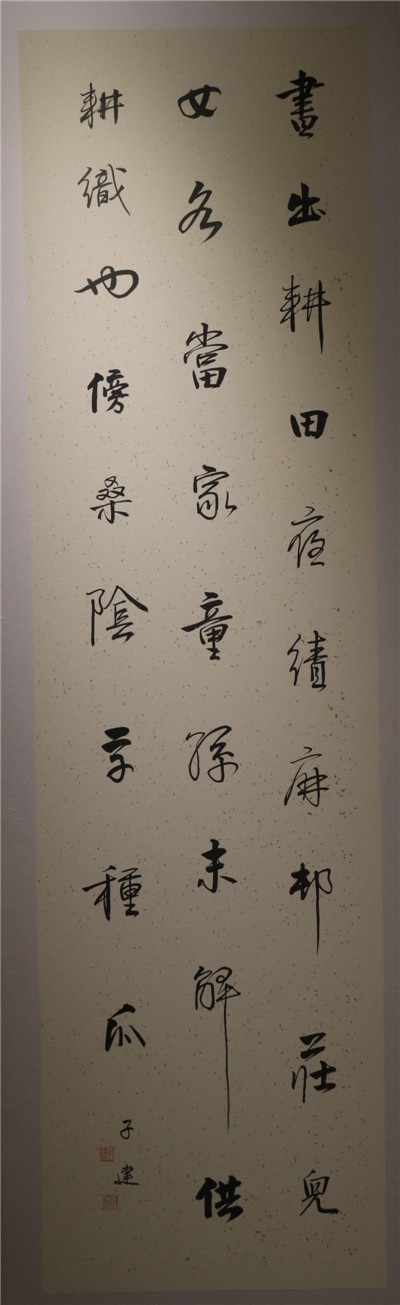 晝出耕田夜績麻邨莊兒
女各當家童孫未解供
耕織也傍桑陰学種瓜
子建